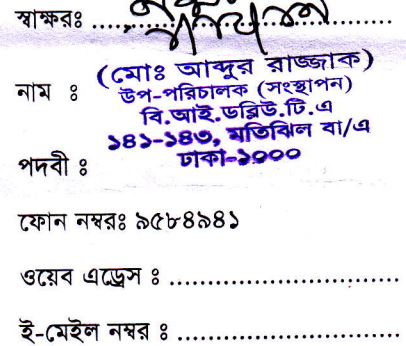 স্বাক্ষরঃ ..............................
(মোঃ আব্দুর রাজ্জাক)
নাম ঃ উপ-পরিচালক (সংস্থাপন)
বি.আই.ডব্লিউ.টি.এ
১৪১-১৪৩, মতিঝিল বা/এ
পদবী ঃ ঢাকা-১০০০
ফোন নম্বরঃ ৯৫৮৪৯৪১
ওয়েব এড্রেস ঃ ..............................
ই-মেইল নম্বর ঃ ..............................